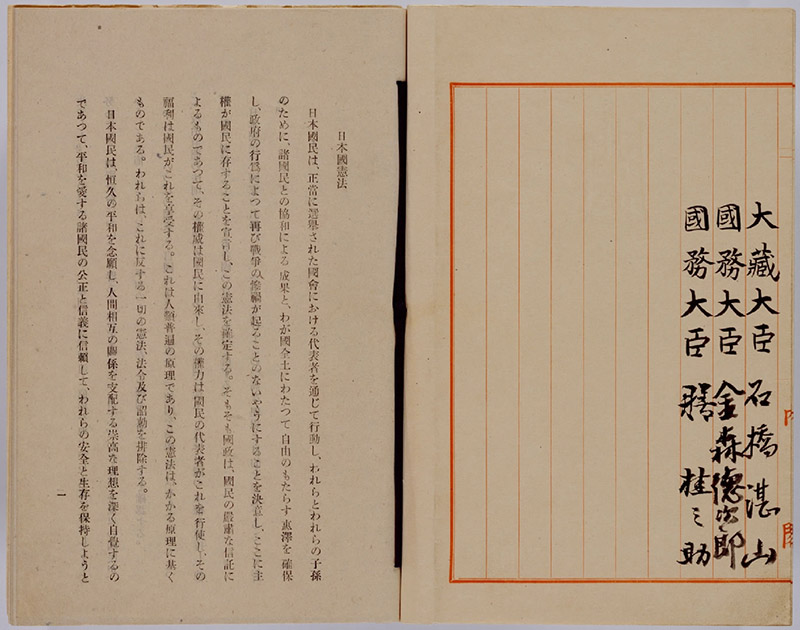 大藏大臣 石橋湛山
國務大臣 金森德次郎
國務大臣 膳桂之助
內閣
日本國憲法
日本國民は、正當に選擧された國會における代表者を通じて行動し、われらとわれらの子孫
のために、諸國民との協和による成果と、わが國全土にわたつて自由のもたらす惠澤を確保
し、政府の行爲によつて再び戰爭の慘禍が起ることのないやうにすることを決意し、ここに主
權が國民に存することを宣言し、この憲法を確定する。そもそも國政は、國民の嚴肅な信託に
よるものであつて、その權威は國民に由來し、その權力は國民の代表者がこれを行使し、その
福利は國民がこれを享受する。これは人類普遍の原理であり、この憲法は、かかる原理に基く
ものである。われらは、これに反する一切の憲法、法令及び詔勅を排除する。
日本國民は、恒久の平和を念願し、人間相互の關係を支配する崇高な理想を深く自覺するの
であつて、平和を愛する諸國民の公正と信義に信賴して、われらの安全と生存を保持しようと
一